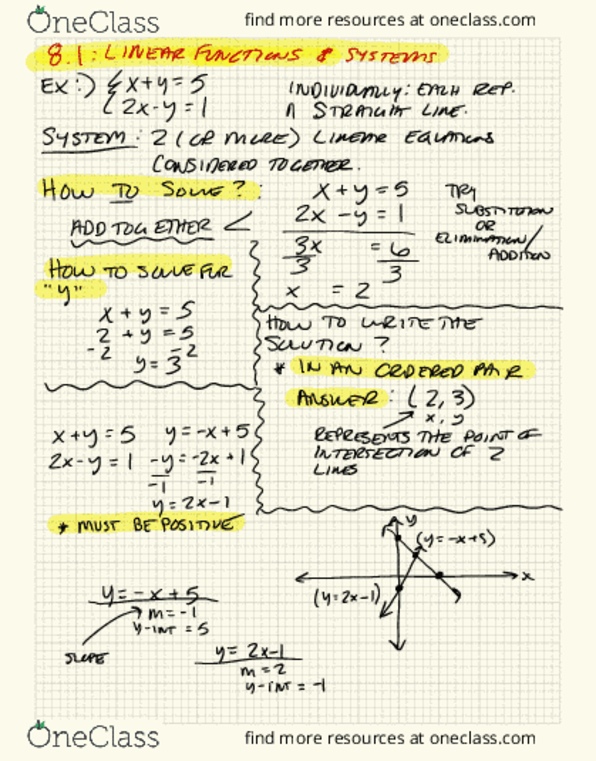 OneClass
find more resources at oneclass.com
8.1: LINEAR FUNCTIONS & SYSTEMS
EX:) { x + y = 5
{ 2x - y = 1
INDIVIDUALLY: EACH REP.
A STRAIGHT LINE.
SYSTEM: 2 (OR MORE) LINEAR EQUATIONS
CONSIDERED TOGETHER.
HOW TO SOLVE?:
ADD TOGETHER <
x + y = 5
2x - y = 1
3x = 6
3 3
x = 2
TRY
SUBSTITUTION
OR
ELIMINATION/
ADDITION
HOW TO SOLVE FOR
"y"
x + y = 5
2 + y = 5
-2 -2
y = 3
HOW TO WRITE THE
SOLUTION?
* IN AN ORDERED PAIR
ANSWER: (2, 3)
x, y
REPRESENTS THE POINT OF
INTERSECTION OF 2
LINES
x + y = 5 y = -x + 5
2x - y = 1 -y = -2x + 1
-1 -1
y = 2x - 1
* MUST BE POSITIVE
y
(y = -x + 5)
x
(y = 2x - 1)
y = -x + 5
m = -1
y-int = 5
SLOPE
y = 2x - 1
m = 2
y-int = -1
OneClass
find more resources at oneclass.com